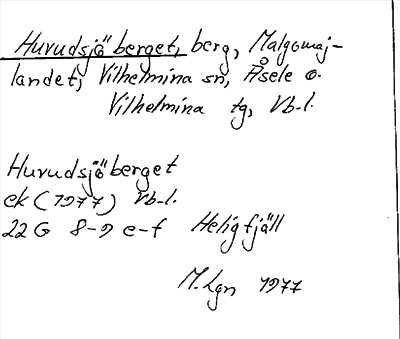 Huvudsjöberget, berg, Malgomaj-
landet, Vilhelmina sn, Åsele o.
Vilhelmina tg, Vb-l.
Huvudsjöberget
ek (1977) Vb-l.
22 G 8-9 e-f Heligfjäll
M. Lgn 1977